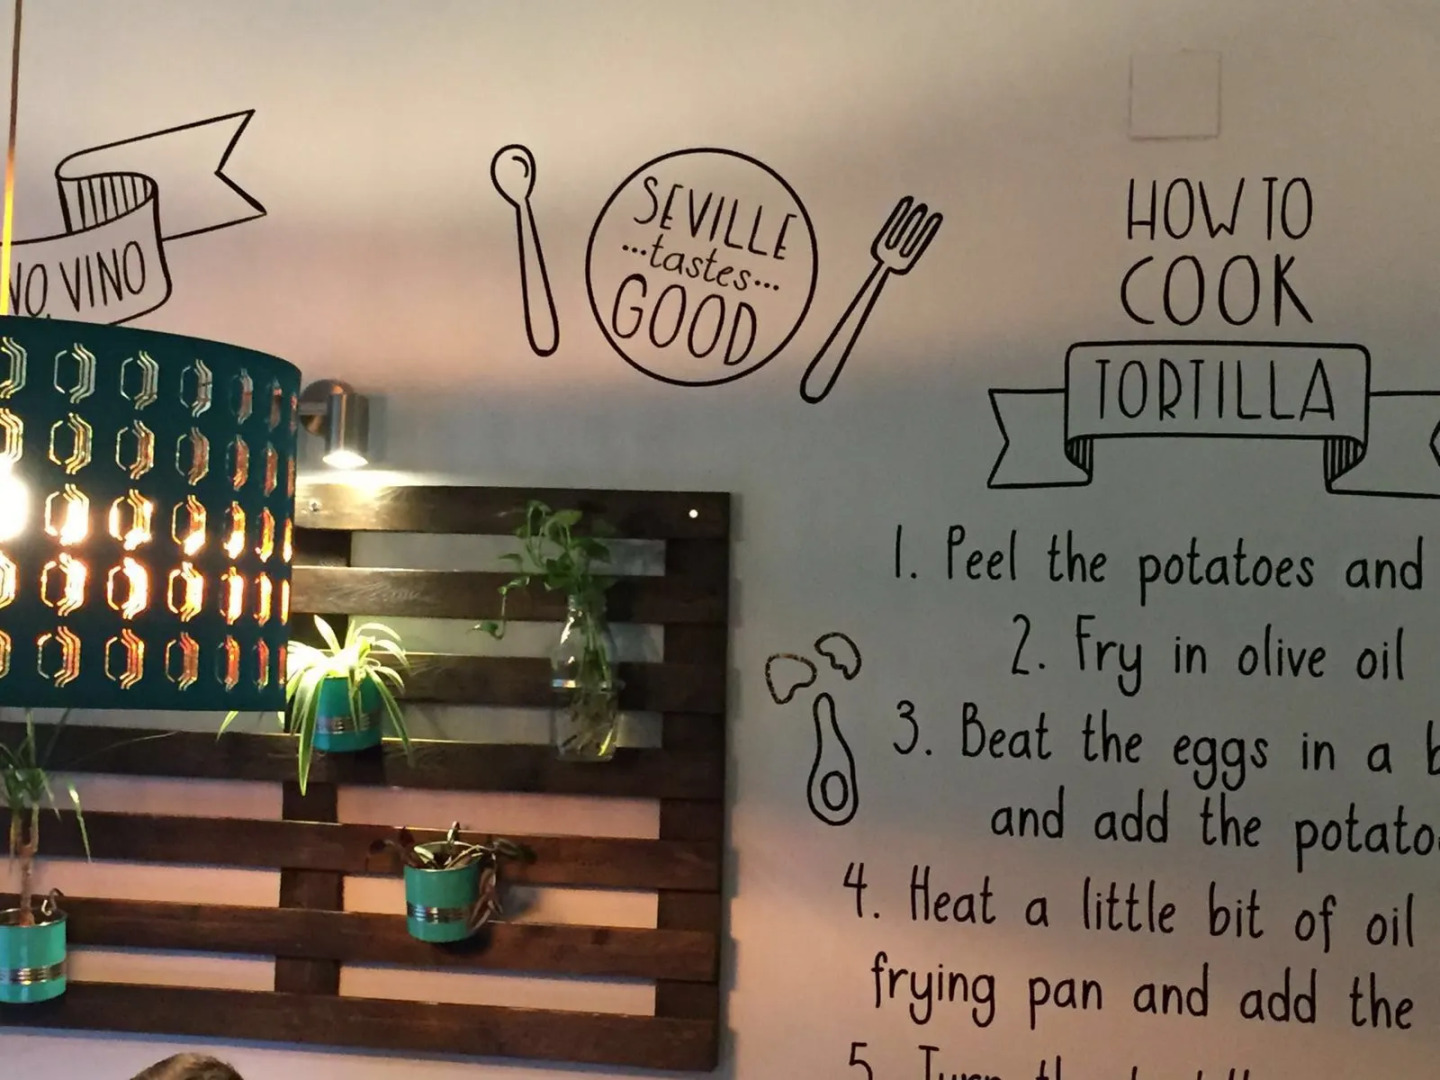 VINO
SEVILLE
...tastes...
GOOD
HOW TO
COOK
TORTILLA
1. Peel the potatoes and
2. Fry in olive oil
3. Beat the eggs in a
and add the
4. Heat a little bit of oil
frying pan and add the
5.